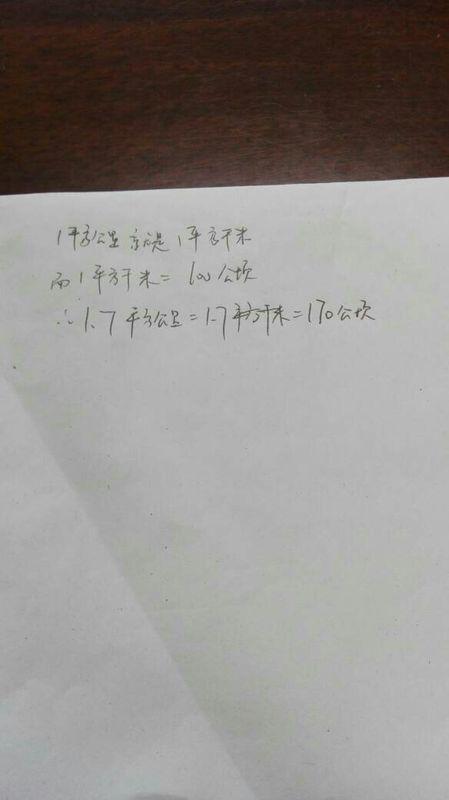 1平方公里就是1平方千米
而1平方千米=100公顷
∴1.7平方公里=1.7平方千米=170公顷